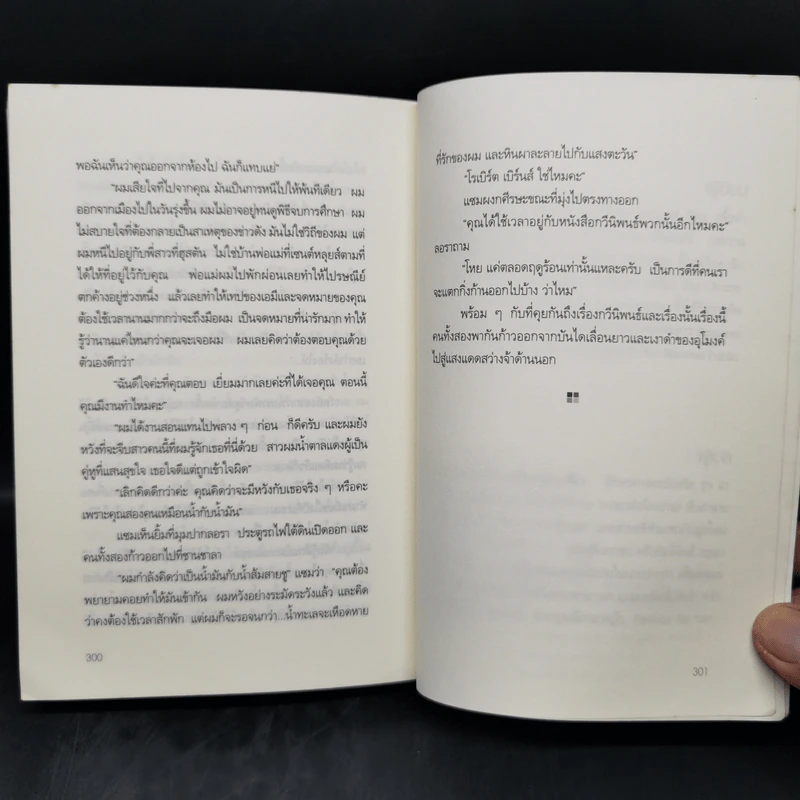 พอฉันเห็นว่าคุณออกจากห้องไป ฉันก็แทบแย่"
"ผมเสียใจที่ไปจากคุณ มันเป็นการหนีไปให้พ้นทีเดียว ผม
ออกจากเมืองไปในวันรุ่งขึ้น ผมไม่อาจอยู่ทนดูพิธีจบการศึกษา ผม
ไม่สบายใจที่ต้องกลายเป็นสาเหตุของข่าวดัง มันไม่ใช่วิถีของผม แต่
ผมหนีไปอยู่กับพี่สาวที่ฮูสตัน ไม่ใช่บ้านพ่อแม่ที่เซนต์หลุยส์ตามที่
ได้ให้ที่อยู่ไว้กับคุณ พ่อแม่ผมไปพักผ่อนเลยทำให้ไปรษณีย์
ตกค้างอยู่ช่วงหนึ่ง แล้วเลยทำให้เทปของเอมีและจดหมายของคุณ
ต้องใช้เวลานานมากกว่าจะถึงมือผม เป็นจดหมายที่น่ารักมาก ทำให้
รู้ว่านานแค่ไหนกว่าคุณจะเจอผม ผมเลยคิดว่าต้องตอบคุณด้วย
ตัวเองดีกว่า"
"ฉันดีใจค่ะที่คุณตอบ เยี่ยมมากเลยค่ะที่ได้เจอคุณ ตอนนี้
คุณมีงานทำไหมคะ"
"ผมได้งานสอนแทนไปพลาง ๆ ก่อน ก็ดีครับ และผมยัง
หวังที่จะจีบสาวคนนี้ที่ผมรู้จักเธอที่นี่ด้วย สาวผมน้ำตาลแดงผู้เป็น
คู่หูที่แสนสุขใจ เธอใจดีแต่ถูกเข้าใจผิด"
"เลิกคิดดีกว่าค่ะ คุณคิดว่าจะมีหวังกับเธอจริง ๆ หรือคะ
เพราะคุณสองคนเหมือนน้ำกับน้ำมัน"
แซมเห็นยิ้มที่มุมปากลอรา ประตูรถไฟใต้ดินเปิดออก และ
คนทั้งสองก้าวออกไปที่ชานชาลา
"ผมกำลังคิดว่าเป็นน้ำมันกับน้ำส้มสายชู" แซมว่า "คุณต้อง
พยายามคอยทำให้มันเข้ากัน ผมหวังอย่างระมัดระวังแล้ว และคิด
ว่าคงต้องใช้เวลาสักพัก แต่ผมก็จะรอจนกว่า...น้ำทะเลจะเหือดหาย
300
ที่รักของผม และหินผาละลายไปกับแสงตะวัน"
"โรเบิร์ต เบิร์นส์ ใช่ไหมคะ"
แซมผงกศีรษะขณะที่มุ่งไปตรงทางออก
"คุณได้ใช้เวลาอยู่กับหนังสือกวีนิพนธ์พวกนั้นอีกไหมคะ"
ลอราถาม
"โหย แค่ตลอดฤดูร้อนเท่านั้นแหละครับ เป็นการดีที่คนเรา
จะแตกกิ่งก้านออกไปบ้าง ว่าไหม"
พร้อม ๆ กับที่คุยกันถึงเรื่องกวีนิพนธ์และเรื่องนั้นเรื่องนี้
คนทั้งสองพากันก้าวออกจากบันไดเลื่อนยาวและเงาดำของอุโมงค์
ไปสู่แสงแดดสว่างจ้าด้านนอก
301